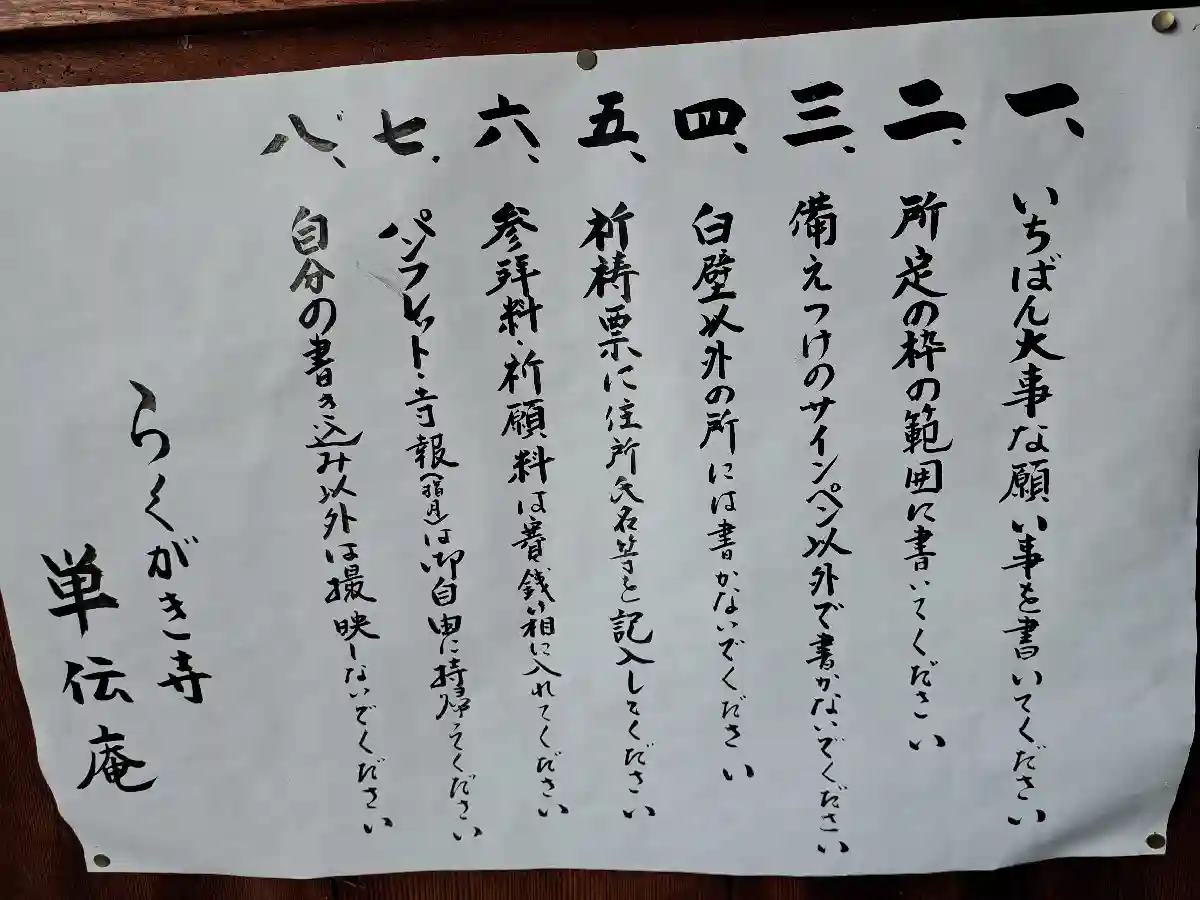 一、いちばん大事な願い事を書いてください
二、所定の枠の範囲に書いてください
三、備えつけのサインペン以外で書かないでください
四、白壁以外の所には書かないでください
五、祈祷票に住所氏名等を記入してください
六、参拝料・祈願料は賽銭箱に入れてください
七、パンフレット・寺報(指月)は御自由に持帰ってください
八、自分の書き込み以外は撮映しないでください
らくがき寺
単伝庵